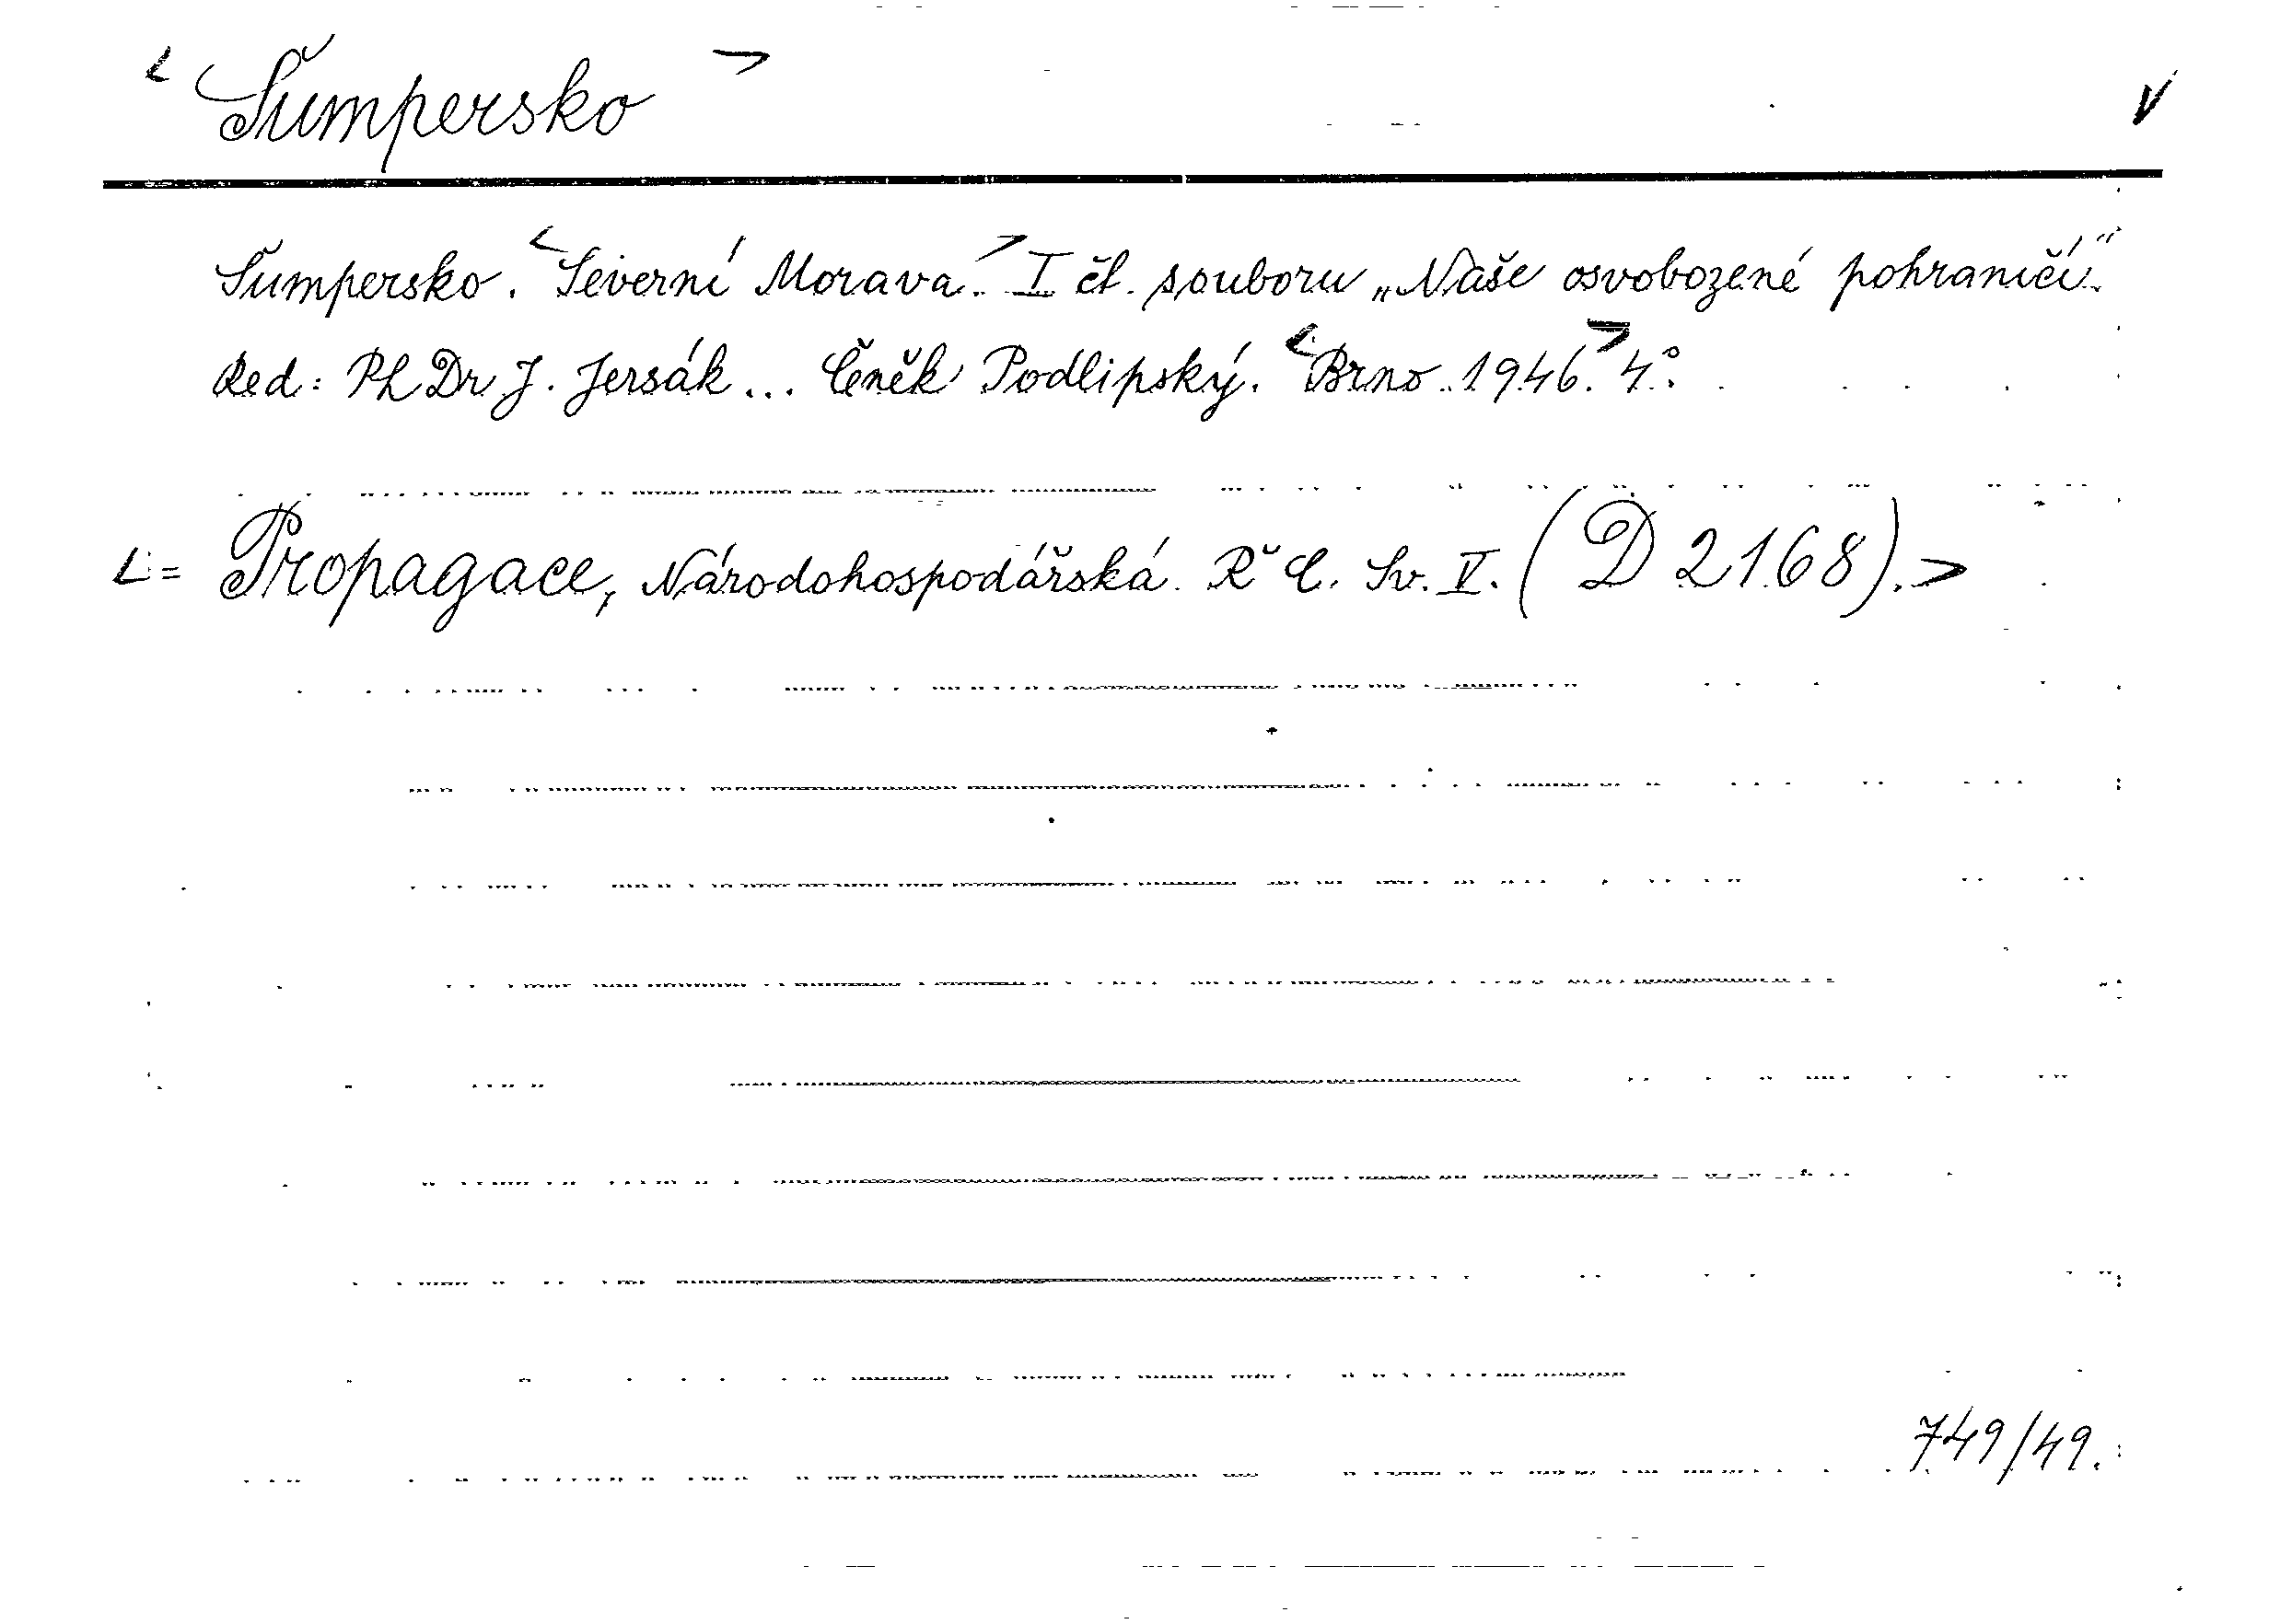 < Šumpersko > V
Šumpersko. <Severní Morava.> I čł. souboru „Naše osvobozené pohraničí."
Red: PhDr J. Jersák ... Čeněk Podlipský. <Brno. 1946.> 4.°
<= Propagace, Národohospodářská. RˇC. Sv. V. (D 2168).>
749/49.